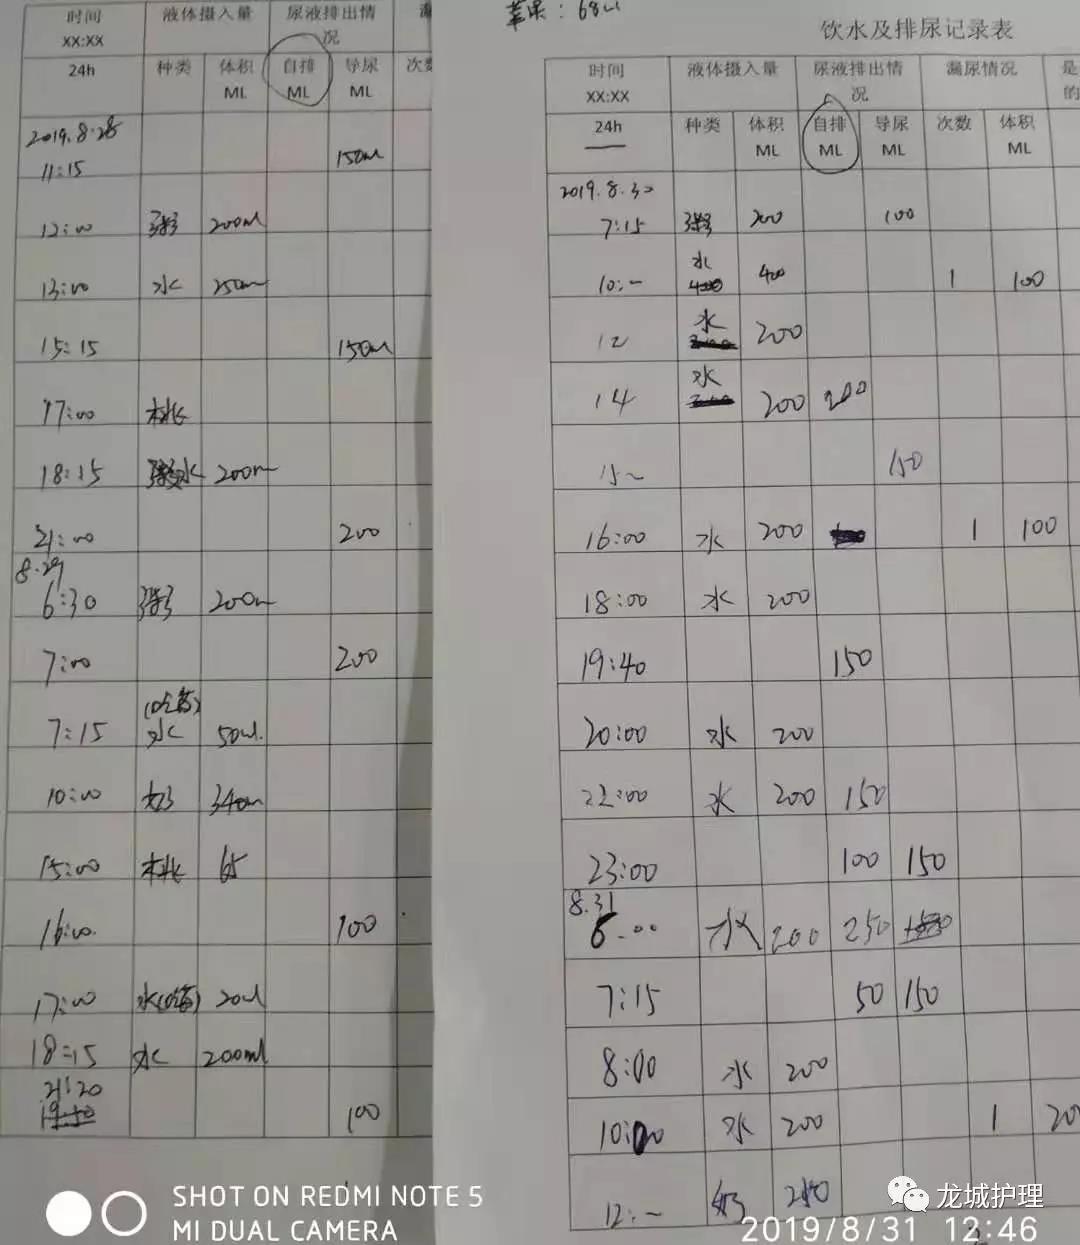 时间 液体摄入量 尿液排出情况
XX:XX
24h 种类 体积 ML 自排 ML 导尿 ML 次数
2019.8.28
11:15 150ml
12:00 粥 200ml
13:00 水 250ml
15:15 150ml
17:00 桃
18:15 水 200ml
21:00 200
8.29
6:30 粥 200ml
7:00 200
7:15 (吃药)水 50ml.
10:00 奶 340ml
15:00 桃 65
16:00. 100
17:00 水(吃药) 20ml
18:15 水 200ml
21:20
19:50
100
苹果:68ml
饮水及排尿记录表
时间 液体摄入量 尿液排出情况 漏尿情况 是
XX:XX 的
24h 种类 体积 ML 自排 ML 导尿 ML 次数 体积 ML
2019.8.30
7:15 粥 200 100
10:- 水 400 400 1 100
12 水 200
14 水 200 200
15~ 150
16:00 水 200 1 100
18:00 水 200
19:40 150
20:00 水 200
22:00 水 200 150
23:00 100 150
8.31
6:00 水 200 250 150
7:15 50 150
8:00 水 200
10:00 水 200 1 20
12:- 奶
SHOT ON REDMI NOTE 5
MI DUAL CAMERA
龙城护理
2019/8/31 12:46